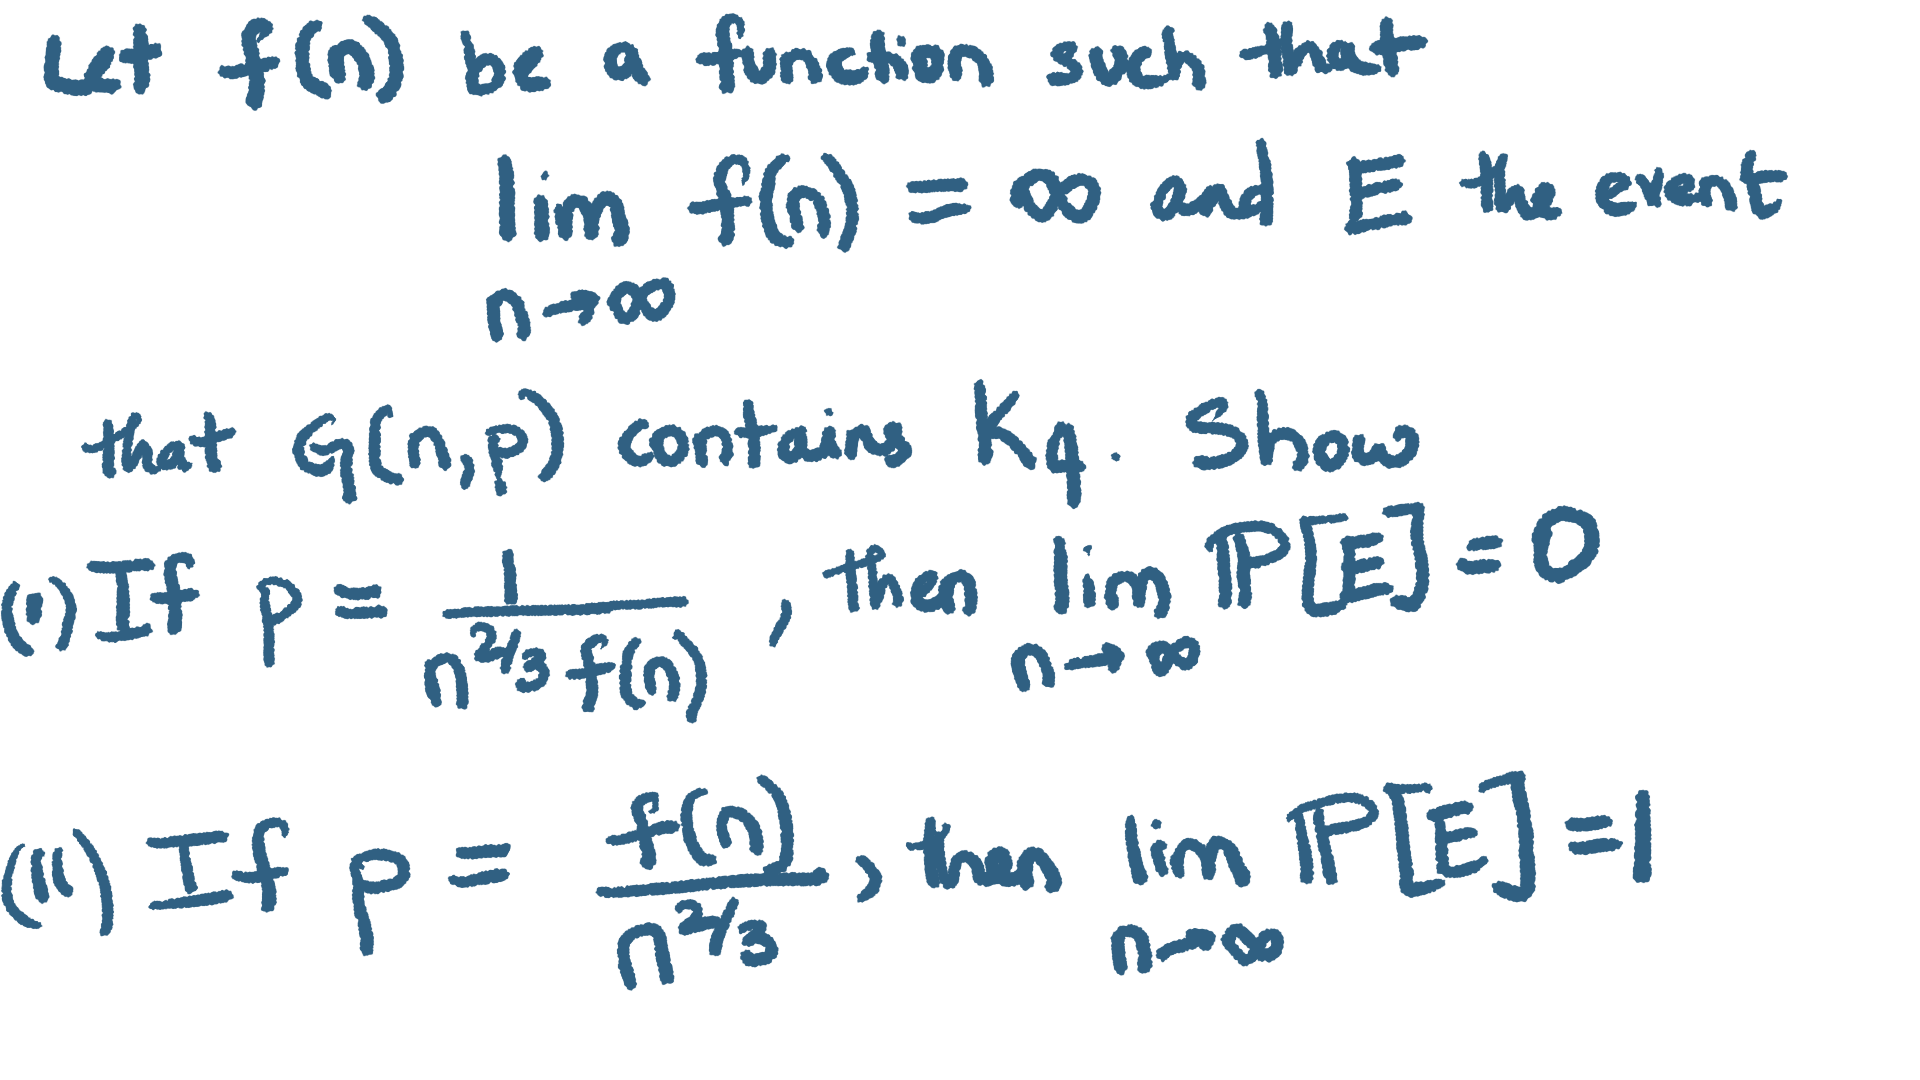 Let f(n) be a function such that
lim f(n) = ∞ and E the event
n→∞
that G(n,p) contains K₄. Show
(i) If p = 1/(n^{2/3} f(n)), then lim_{n→∞} ℙ[E] = 0
(ii) If p = f(n)/n^{2/3}, then lim_{n→∞} ℙ[E] = 1